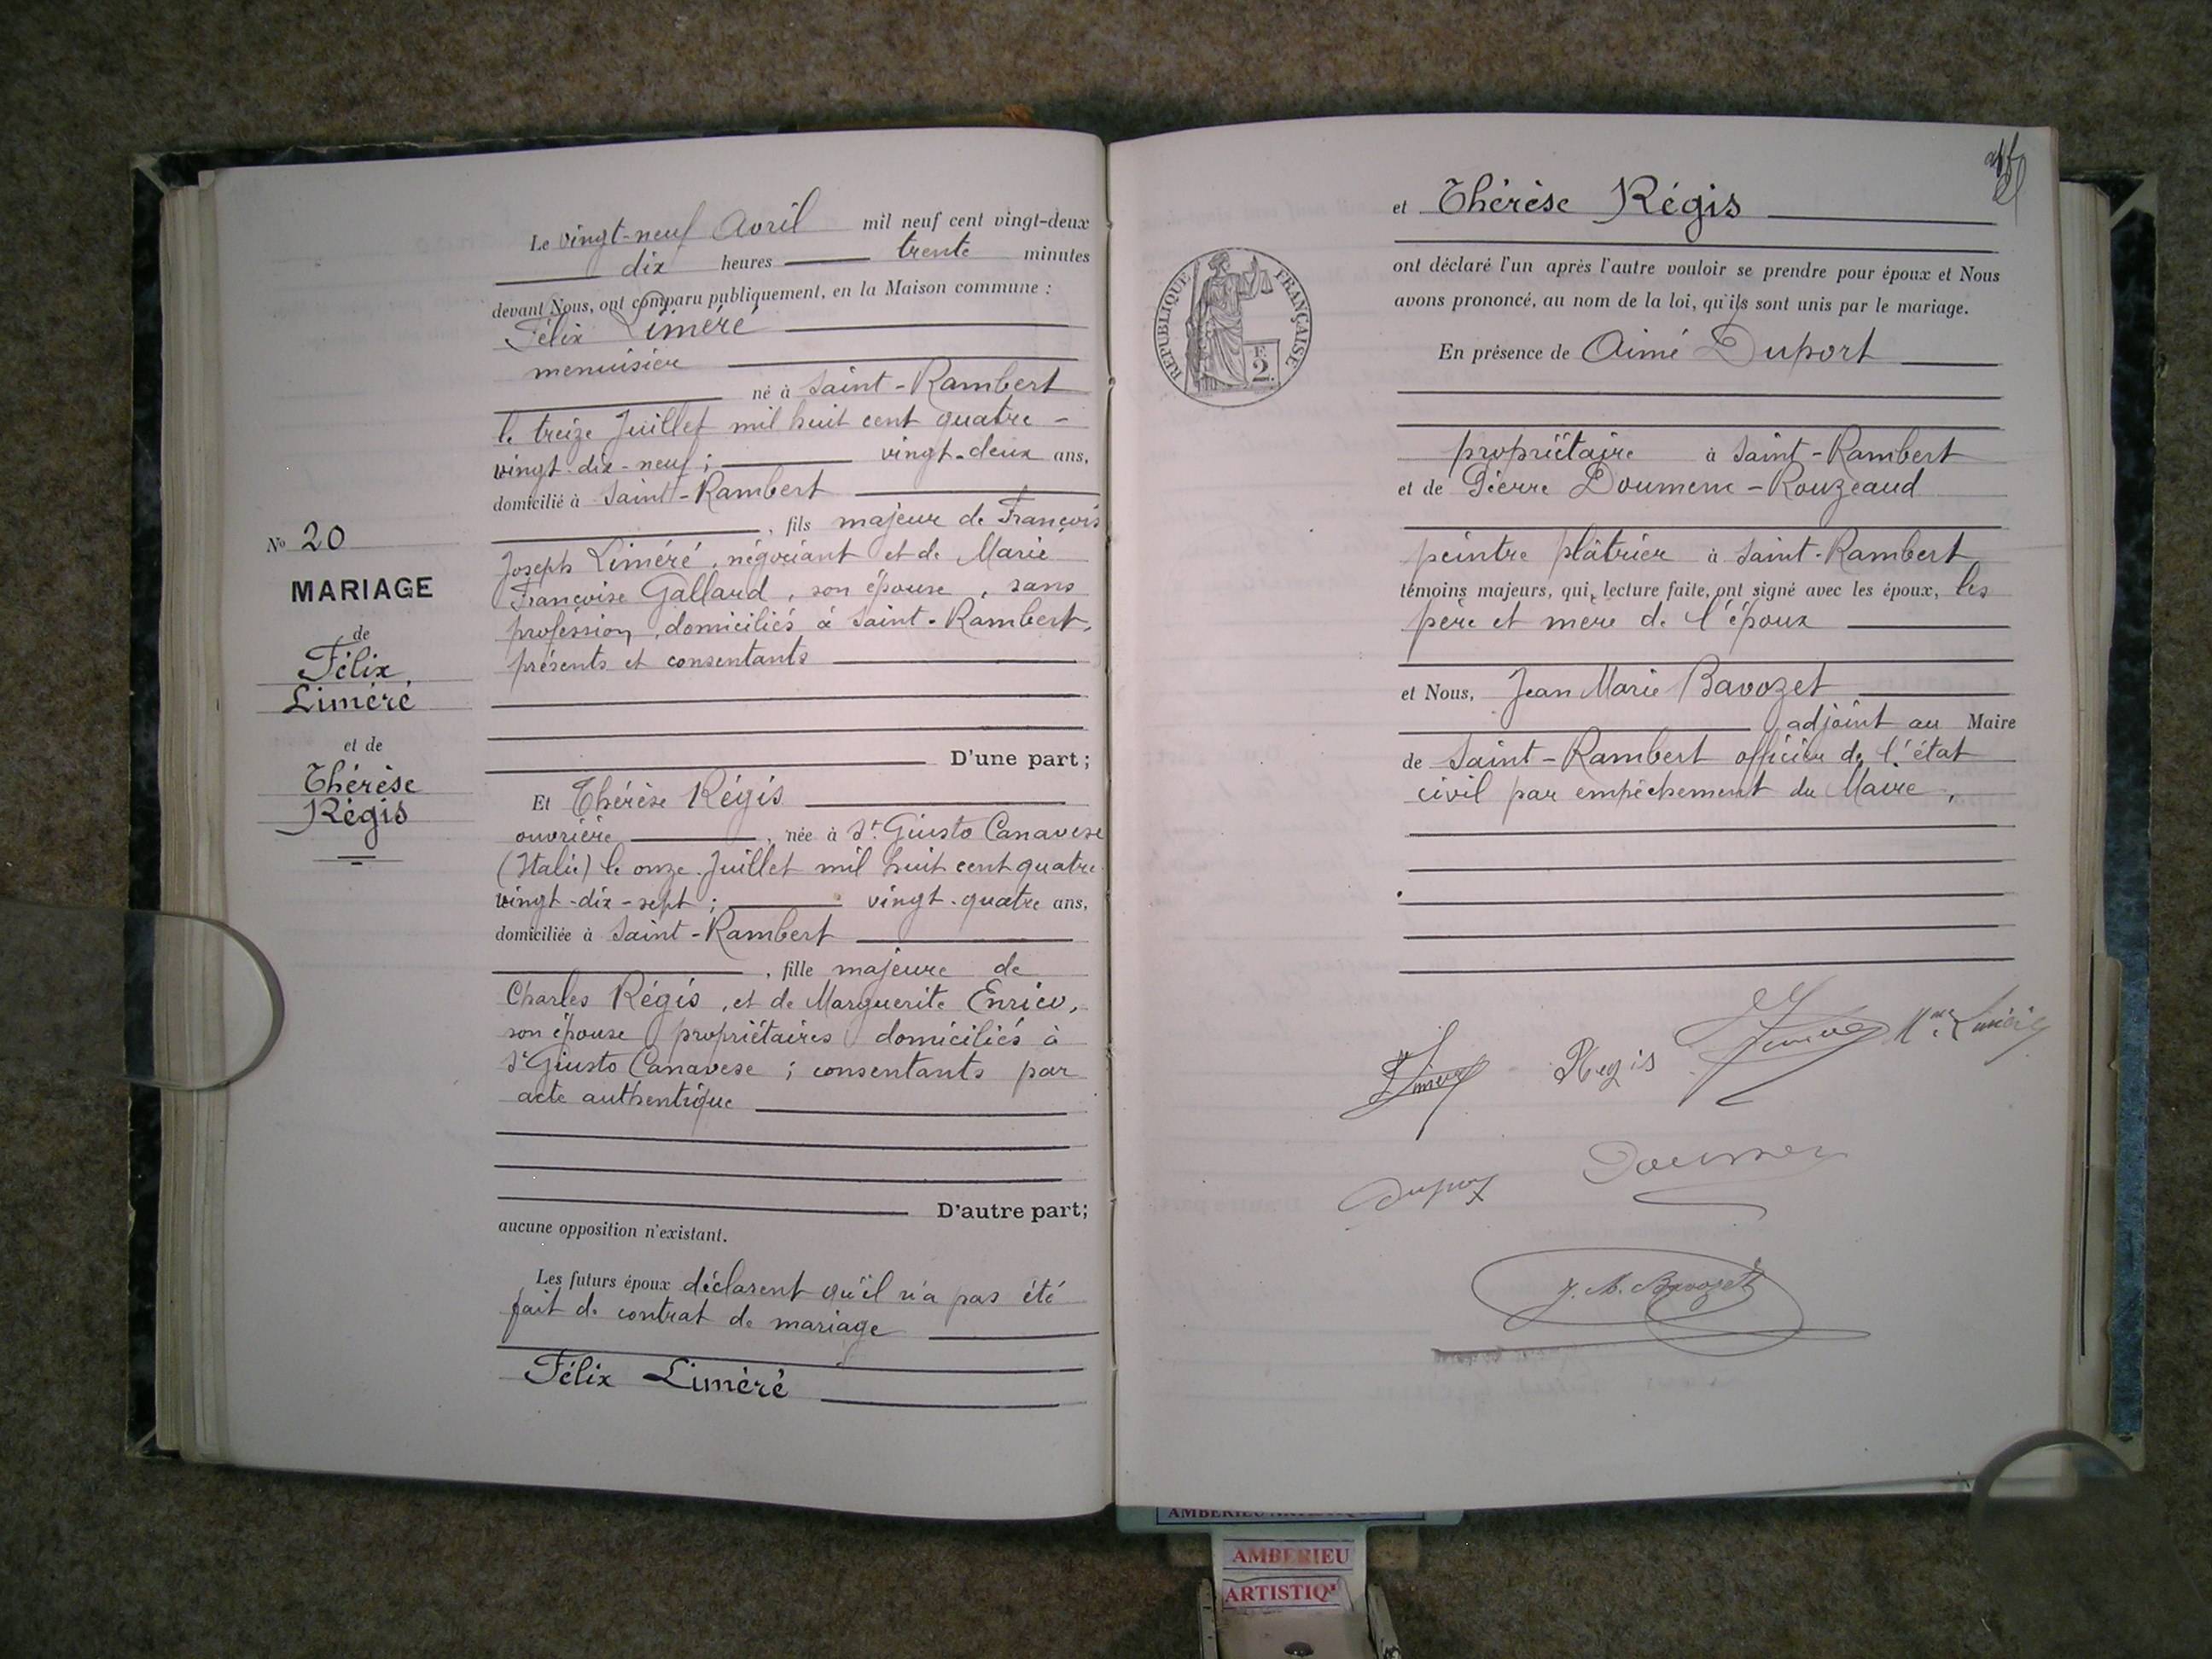 Le vingt-neuf Avril mil neuf cent vingt-deux
dix heures trente minutes
devant Nous, ont comparu publiquement, en la Maison commune :
Félix Liméré
menuisier
né à Saint-Rambert
le treize Juillet mil huit cent quatre-
vingt-dix-neuf ; vingt-deux ans,
domicilié à Saint-Rambert
, fils majeur de François
Joseph Liméré, négociant et de Marie
Françoise Galland, son épouse, sans
profession, domiciliés à Saint-Rambert,
présents et consentants
D'une part ;
Et Thérèse Régis
ouvrière, née à St Giusto Canavese
(Italie) le onze Juillet mil huit cent quatre
vingt-dix-sept ; vingt-quatre ans,
domiciliée à Saint-Rambert
, fille majeure de
Charles Régis, et de Marguerite Enrico,
son épouse propriétaires domiciliés à
St Giusto Canavese ; consentants par
acte authentique
D'autre part;
aucune opposition n'existant.
Les futurs époux déclarent qu'il n'a pas été
fait de contrat de mariage
Félix Liméré
No 20
MARIAGE
de
Félix
Liméré
et de
Thérèse
Régis
et Thérèse Régis
ont déclaré l'un après l'autre vouloir se prendre pour époux et Nous
avons prononcé, au nom de la loi, qu'ils sont unis par le mariage.
En présence de Aimé Duport
propriétaire à Saint-Rambert
et de Pierre Doumenc-Rouzeaud
peintre plâtrier à Saint-Rambert
témoins majeurs, qui, lecture faite, ont signé avec les époux, les
père et mère de l'époux
et Nous, Jean Marie Bavozet
adjoint au Maire
de Saint-Rambert officier de l'état
civil par empêchement du Maire,
RÉPUBLIQUE FRANÇAISE
F.
2.
Regis
J. M. Bavozet
AMBERIEU
ARTISTIQ